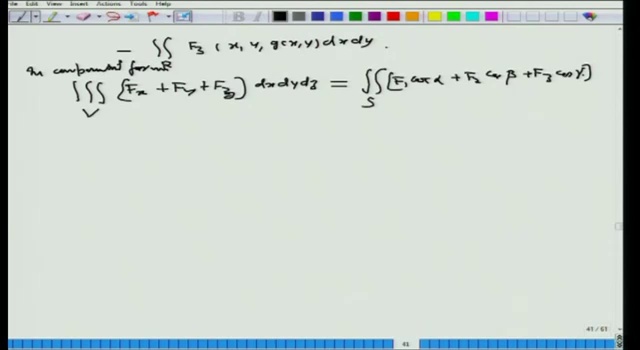 File Edit View Insert Actions Tools Help
— ∬ F3 (x, y, g(x,y) dxdy.
R
In component form
∭ [Fx + Fy + Fz] dxdydz = ∬ [F1 cos α + F2 cos β + F3 cos γ]
V S
41 / 61
41